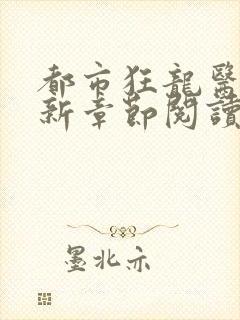 都市狂龍醫
新章節閱讀
墨北亦